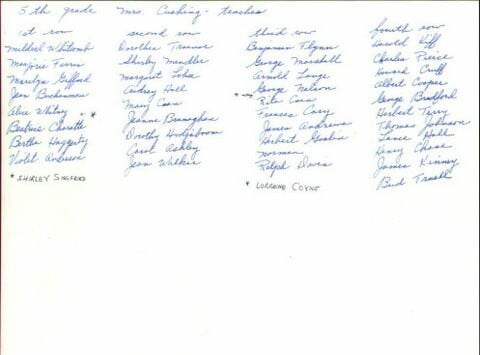 5th grade Mrs. Cushing - teacher
1st row
Mildred Whitcomb
Marjorie Ferris
Marilyn Gifford
Jean Buchannan
Alice Whitney *
Beatrice Charette
Bertha Haggerty
Violet Anderson
* SHIRLEY SINGFRIED
second row
Dorothea
Shirley Mandler
Margaret
Audrey Hall
Mary Coan
Jeanne Branaghan
Dorothy Hodgeboom
Carol Ashley
Jean Walker
third row
Benjamin Flynn
George Marshall
Arnold Lange
George Nelson
Rita Coan
Frances Cary
James Andrews
Herbert
Norman
Ralph Davis
* LORRAINE COYNE
fourth row
Harold Kiff
Charles Pierce
Howard
Albert Cooper
George Bradford
Herbert Terry
Thomas Johnson
Lance Hall
Henry Chase
James Kinney
Bud